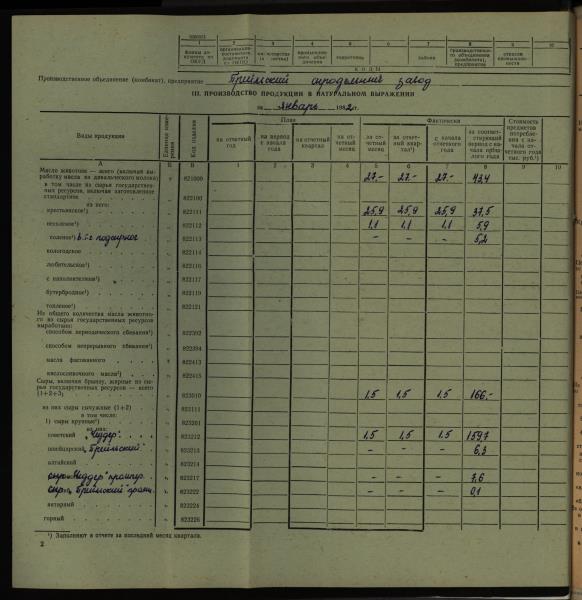 1 2 3 4 5 6 7 8 9 10
Производственное объединение (комбинат), предприятие
сыродельный завод
III. ПРОИЗВОДСТВО ПРОДУКЦИИ В НАТУРАЛЬНОМ ВЫРАЖЕНИИ
за январь 1982 г.
Виды продукции
Единица измерения
Код изделия
План
на отчетный год
на период с начала года
на отчетный квартал
на отчетный месяц
Фактически
за отчетный месяц
за отчетный квартал¹)
с начала отчетного года
за соответствующий период с начала прошлого года
Стоимость предметов потребления с начала отчетного года тыс. руб.¹)
А Б В 1 2 3 4 5 6 7 8 9 10
Масло животное — всего (включая выработку масла из давальческого молока) 821000 27,- 27,- 27,- 43,4
в том числе из сырья государственных ресурсов, включая заготовленное
стандартное 822100
из него:
крестьянское¹) 822111 25,9 25,9 25,9 37,5
несоленое¹) 822112 1,1 1,1 1,1 5,9
соленое¹) в т.ч. подсырное 822113 - - -
вологодское 822114
любительское¹) 822116
с наполнителями¹) 822117
бутербродное¹) 822119
топленое¹) 822121
Из общего количества масла животного из сырья государственных ресурсов
выработано:
способом периодического сбивания¹) 822392
способом непрерывного сбивания¹) 822394
масла фасованного 822413
кислосливочного масла¹) 822415
Сыры, включая брынзу, жирные из сырья государственных ресурсов — всего
(1+2+3) 823010 1,5 1,5 1,5 166,-
из них сыры сычужные (1+2) 823111
в том числе:
1) сыры крупные¹) 823201
из них:
советский „Чеддер" 823212 1,5 1,5 1,5 159,7
швейцарский 823213 - - - 6,3
алтайский 823214
„Чеддер" 823217 - - - 3,6
823222 - - - 0,1
янтарный 823224
горный 823226
¹) Заполняют в отчете за последний месяц квартала.
2